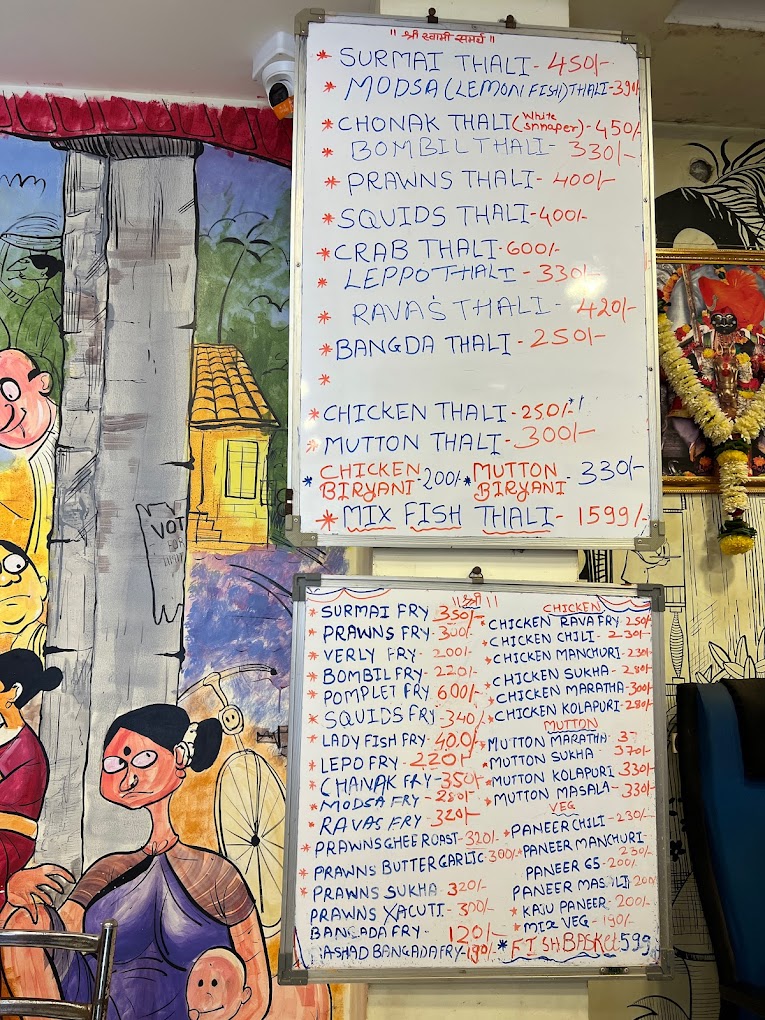 ॥ श्री स्वामी समर्थ ॥
* SURMAI THALI - 450/-
* MODSA (LEMONFISH) THALI - 390/-
* CHONAK THALI (White Snnaper) - 450/-
* BOMBIL THALI - 330/-
* PRAWNS THALI - 400/-
* SQUIDS THALI - 400/-
* CRAB THALI - 600/-
* LEPPO THALI - 330/-
* RAVAS THALI - 420/-
* BANGDA THALI - 250/-
*
* CHICKEN THALI - 250/-
* MUTTON THALI - 300/-
* CHICKEN BIRYANI - 200/- * MUTTON BIRYANI - 330/-
* MIX FISH THALI - 1599/-
॥ श्री ॥
* SURMAI FRY 350/-
* PRAWNS FRY - 300/-
* VERLY FRY - 200/-
* BOMBIL FRY - 220/-
* POMPLET FRY 600/-
* SQUIDS FRY - 340/-
* LADY FISH FRY - 400/-
* LEPO FRY - 220/-
* CHANAK FRY - 350/-
* MODSA FRY - 280/-
* RAVAS FRY - 320/-
* PRAWNS GHEE ROAST - 320/-
* PRAWNS BUTTER GARLIC - 300/-
* PRAWNS SUKHA - 320/-
PRAWNS XACUTI - 300/-
BANGADA FRY - 120/-
ASHAD BANGADA FRY - 190/-
CHICKEN
CHICKEN RAVA FRY 250/-
* CHICKEN CHILI - 230/-
* CHICKEN MANCHURI - 230/-
* CHICKEN SUKHA - 280/-
* CHICKEN MARATHA - 300/-
* CHICKEN KOLAPURI - 280/-
MUTTON
* MUTTON MARATHA - 
* MUTTON SUKHA - 370/-
* MUTTON KOLAPURI 330/-
* MUTTON MASALA - 330/-
VEG
* PANEER CHILI - 230/-
* PANEER MANCHURI - 230/-
PANEER 65 - 200/-
PANEER MASALI - 200
* KAJU PANEER - 200/-
* MIX VEG - 190/-
* FISH BASKEL 599
VOT
FOR